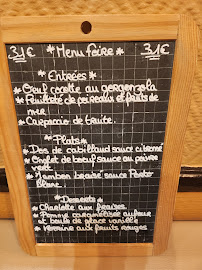 31€ * Menu Foire * 31€
* Entrées *
* Oeuf cocotte au gorgonzola
* Feuilleté de poireaux et fruits de
mer
* Carpaccio de truite.
* Plats *
* Dos de cabillaud sauce citronné
* Onglet de boeuf sauce au poivre
vert
* Jambon braisé sauce Porto
Blanc.
* Desserts *
* Charlotte aux fraises
* Pomme caramélisée au four
et boule de glace vanille
* Verrine aux fruits rouges